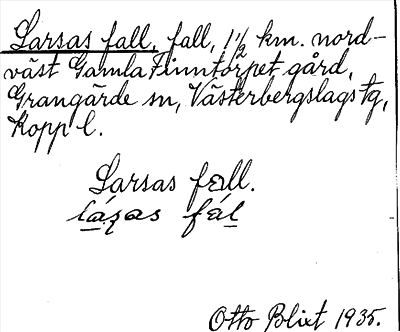 Larsas fall, fall, 1 1/2 km. nord-
väst Gamla Finntorpet gård,
Grangärde sn, Västerbergslags tg,
Kopp l.
Larsas fall.
fál
Otto Blixt 1935.